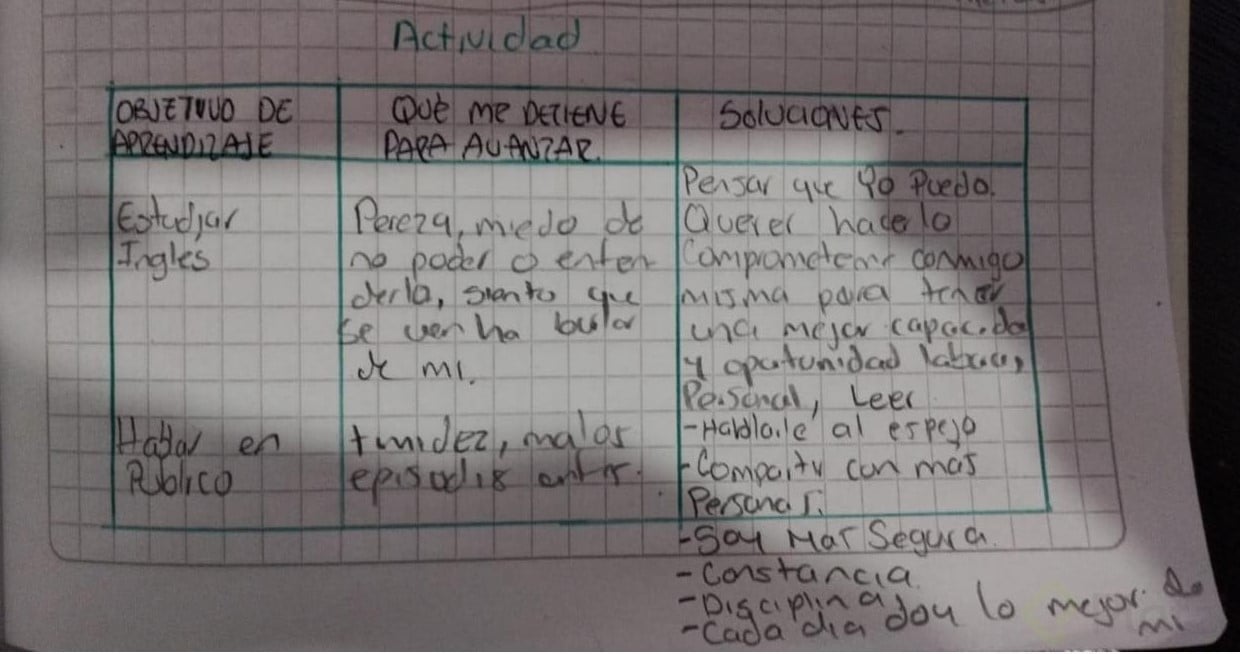 Actividad
OBJETIVO DE
APRENDIZAJE
QUÉ ME DETIENE
PARA AVANZAR.
SOLUCIONES.
Estudiar
Ingles
Pereza, miedo de
no poder o enten
derla, siento que
se van ha bular
de mi.
Pensar que Yo Puedo.
Querer hacerlo
Comprometerme conmigo
misma para tener
una mejor capacida
y oportunidad laboral,
Personal, Leer
Hablar en
Público
timidez, malos
episodis antes.
-Hablarle al espejo
-Compartir con más
Personas.
-Soy Mas Segura.
-Constancia.
-Disciplina
-Cada dia doy lo mejor de
mi